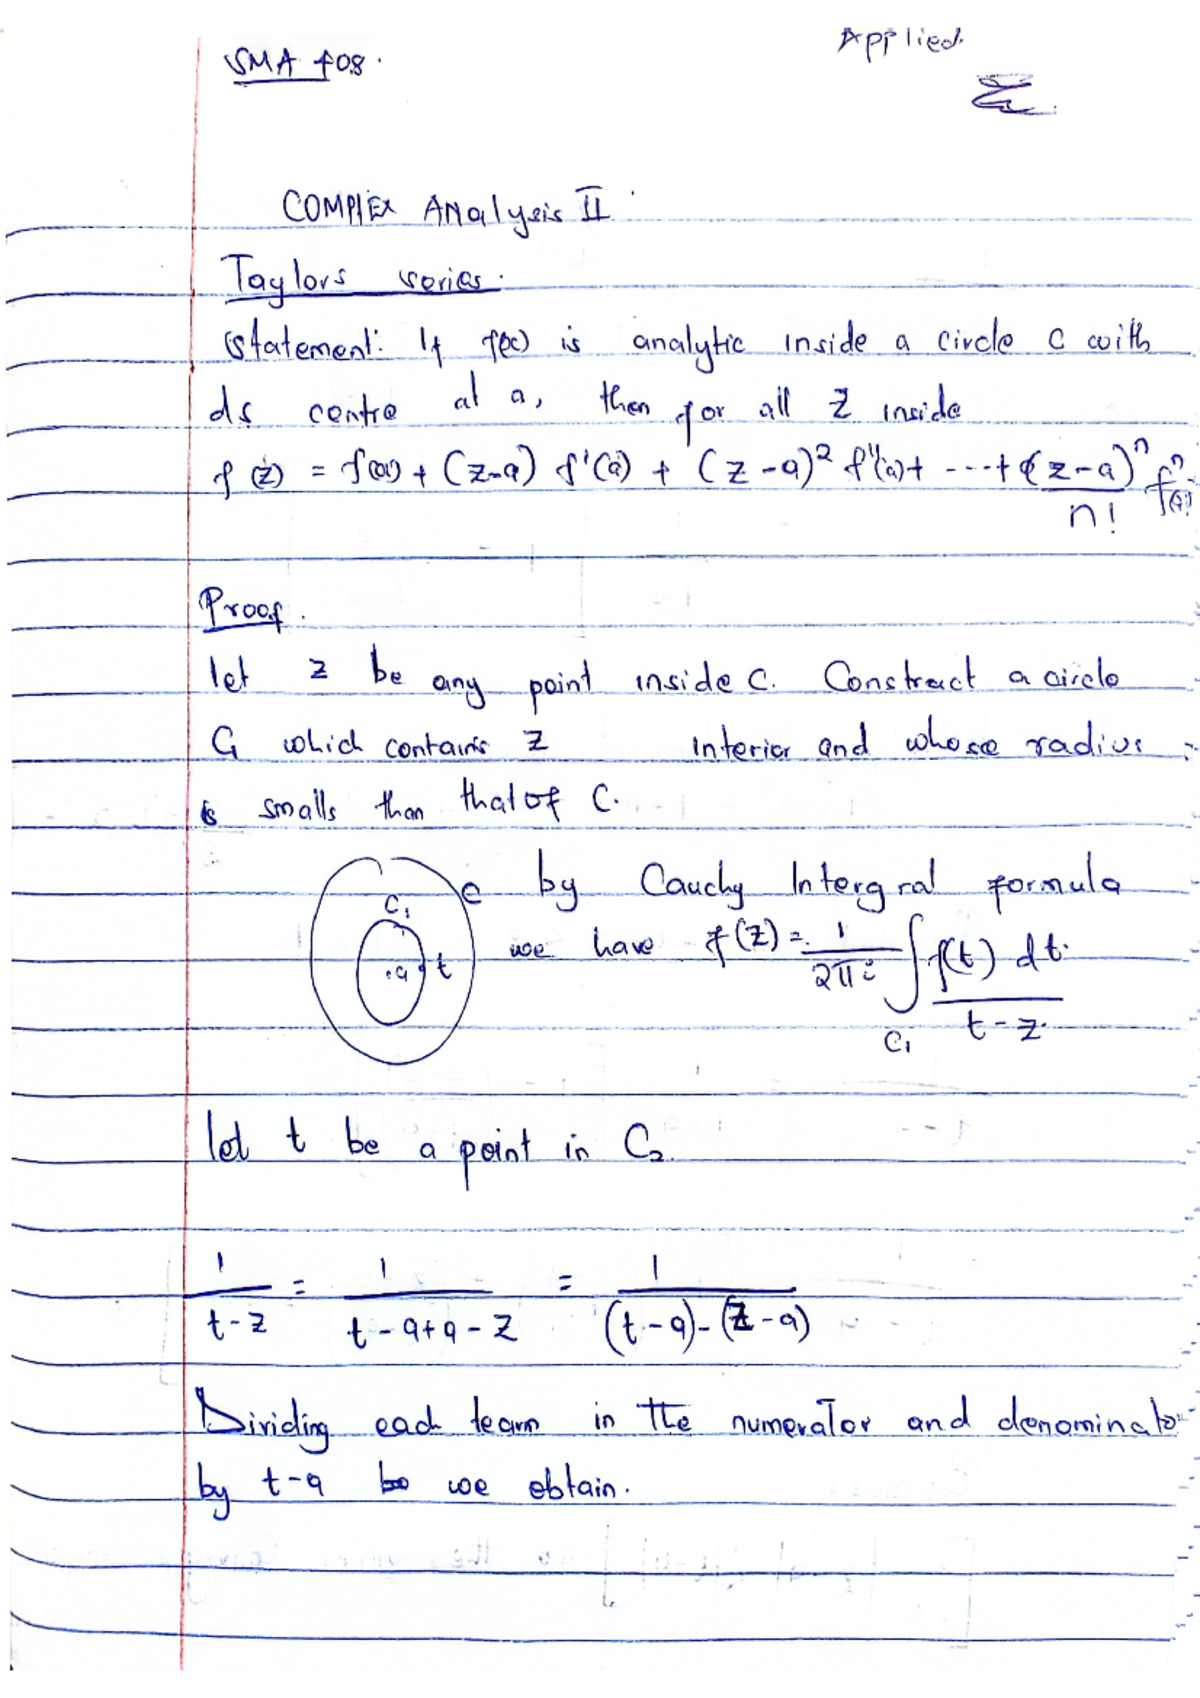 Applied.
SMA 408.
COMPlEx ANalysis II
Taylors series.
Statement: If f(x) is analytic inside a circle C with
its centre at a, then for all Z inside
f(z) = f(a) + (z-a) f'(a) + (z-a)² f''(a) + ---+ (z-a)ⁿ/n! fⁿ(a)
Proof.
let z be any point inside C. Construct a circle
C₁ which contains z interior and whose radius
is smalls than that of C.
C
C₁
.a t
by Cauchy Intergral formula
we have f(z) = 1/2πi ∫C₁ f(t) dt/t-z.
let t be a point in C₂.
1/t-z = 1/t-a+a-z = 1/(t-a)-(z-a)
Dividing each tearm in the numerator and denominator
by t-a we obtain.